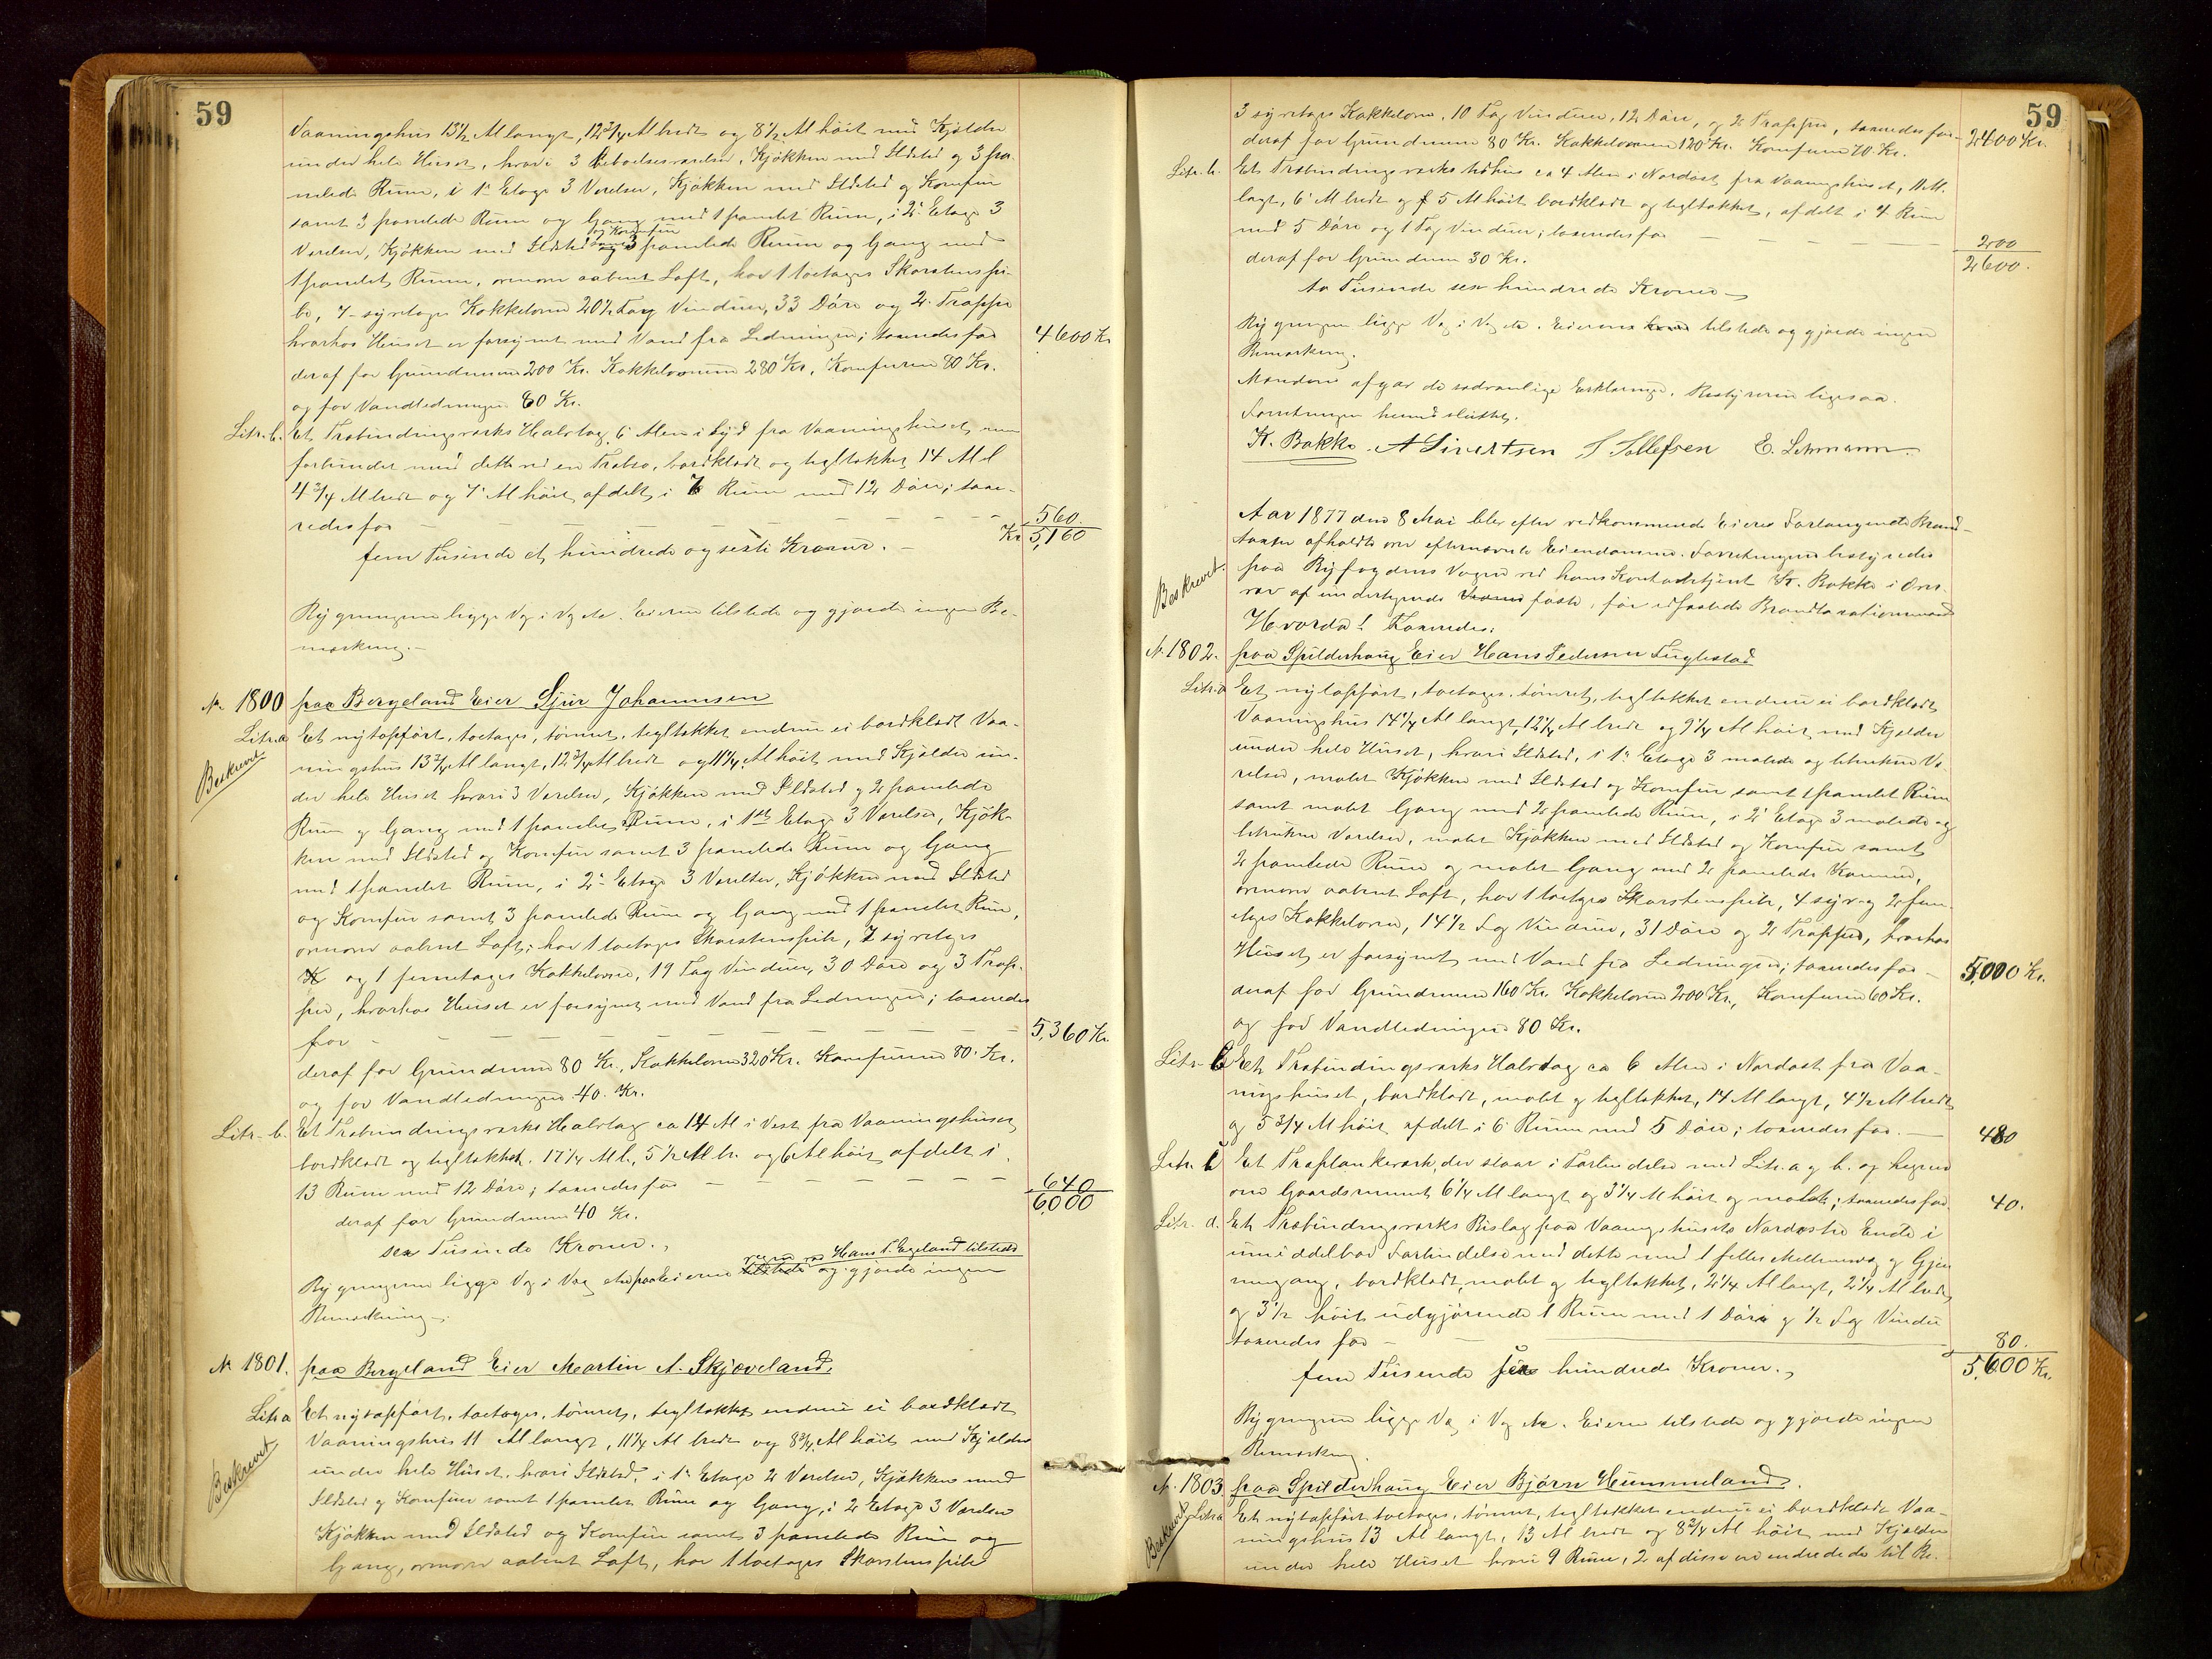 59
Vaaningshus 13½ Al langt, 12¾ Al bredt og 8½ Al høit med Kjelder
under hele Huset, hvori 3 Beboelsesværelser, Kjøkken med Ildsted og 3 pa-
nelede Rum, i 1ste Etage 3 Værelser, Kjøkken med Ildsted og Komfur
samt 3 panelede Rum og Gang med 1 panelet Rum, i 2den Etage 3
og Komfur
Værelser, Kjøkken med Ildsted samt 3 panelede Rum og Gang med
1 panelet Rum, ovenover aabent Loft, har 1 toetages Skorstenspi-
be, 7 syvetages Kakkelovne 20½ Fag Vinduer, 33 Døre og 2 Trapper
hvorhos Huset er forsynet med Vand fra Ledningen; taxeredes for 4600 Kr
deraf for Grundmuren 200 Kr. Kakkelovnene 280 Kr, Komfurene 80 Kr.
og for Vandledningen 80 Kr.
Litr. b. Et Træbindingsværks Halvtag 6 Alen i Syd fra Vaaningshuset men
forbundet med dette ved en Træbro, bordklædt og tegltækket 14 Al l
4¾ Al bredt og 7 Al høit, afdelt i 7 Rum med 12 Døre; taxe-
redes for — — — — — — 560.
fem Tusinde et hundrede og sexti Kroner. — Kr 5,160
Bygningerne ligge Væg i Væg etc. Eieren tilstede og gjorde ingen Be-
mærkning. —
No. 1800 paa Bergeland Eier Sjur Johannesen
Litr. a Et nyt opført, toetages, tømret, tegltækket endnu ei bordklædt Vaa-
Beskrevet
ningshus 13¾ Al langt, 12¾ Al bredt og 11¼ Al høit med Kjelder un-
der hele Huset hvori 3 Værelser, Kjøkken med Ildsted og 2 panelede
Rum og Gang med 1 panelet Rum, i 1ste Etage 3 Værelser, Kjøk-
ken med Ildsted og Komfur samt 3 panelede Rum og Gang
med 1 panelet Rum, i 2den Etage 3 Værelser, Kjøkken med Ildsted
og Komfur samt 3 panelede Rum og Gang med 1 panelet Rum,
ovenover aabent Loft; har 1 toetages Skorstenspibe, 7 syvetages
og 1 femetages Kakkelovne, 19 Fag Vinduer, 30 Døre og 3 Trap-
per, hvorhos Huset er forsynet med Vand fra Ledningen; taxeredes
for — — — — — — 5,360 Kr.
deraf for Grundmuren 80 Kr., Kakkelovnene 320 Kr. Komfurene 80. Kr.
og for Vandledningen 40. Kr.
Litr. b. Et Træbindingsværks Halvtag ca 14 Al i Vest fra Vaaningshuset
bordklædt og tegltækket. 17¼ Al l., 5½ Al br. og 6 Al høit, afdelt i
13 Rum med 12 Døre; taxeredes for — — — — — 640
deraf for Grundmuren 40 Kr. 6000
sex Tusinde Kroner.
Hans T. Egeland tilstede
Bygningerne ligge Væg i Væg etc. paa Eierens tilstede og gjorde ingen
Bemærkning.
No 1801. paa Bergeland Eier Martin A. Skjæveland.
Litr. a Et nyt opført, toetages, tømret, tegltækket endnu ei bordklædt
Beskrevet
Vaaningshus 11 Al langt, 11¼ Al bredt og 8¾ Al høit med Kjelder
under hele Huset, hvori Ildsted, i 1ste Etage 2 Værelser, Kjøkken med
Ildsted og Komfur samt 1 panelet Rum og Gang, i 2 Etage 3 Værelser
Kjøkken med Ildsted og Komfur samt 3 panelede Rum og
Gang, ovenover aabent Loft, har 1 toetages Skorstenspibe
59
3 syvetages Kakkelovne, 10 Fag Vinduer, 12 Døre, og 2 Trapper, taxeredes for 2400 Kr.
deraf for Grundmuren 80 Kr. Kakkelovnene 120 Kr. Komfurene 70 Kr.
Litr. b. Et Træbindingsværks Udhus ca 4 Alen i Nordøst fra Vaaningshuset, 11 Al.
langt, 6 Al bredt og 5 Al høit bordklædt og tegltækket, afdelt i 4 Rum
med 5 Døre og 1 Fag Vinduer; taxeredes for — — — — — 200
deraf for Grundmuren 30 Kr. 2600.
to Tusinde sex hundrede Kroner —
Bygningerne ligge Væg i Væg etc. Eieren tilstede og gjorde ingen
Bemærkning.
Mændene afgav de sædvanlige Erklæringer. Bestyreren ligesaa.
Forretningen hermed sluttet.
K. Bakke. A Sivertsen S Tollefsen E. Lehmann.
Aar 1877 den 8 Mai blev efter vedkommende Eieres Forlangende Brand-
taxter afholdte over efternævnte Eiendomme. Forretningerne bestyredes
Beskrevet.
paa Byfogdens Vegne ved hans Kontorbetjent K. Bakke i Over-
vær af undertegnede faste, før edfæstede Brandtaxationsmænd
Hvorda! Taxeredes:
No. 1802. paa Spilderhaug Eier Hans Pedersen Fuglestad
Litr. a Et nyt opført, toetages, tømret, tegltækket endnu ei bordklædt
Vaaningshus 14¼ Al langt, 12¼ Al bredt og 9¼ Al høit med Kjelder
under hele Huset, hvori Ildsted, i 1ste Etage 3 malede og betrukne Væ-
relser, malet Kjøkken med Ildsted og Komfur samt 1 panelet Rum
samt malet Gang med 2 panelede Rum, i 2den Etage 3 malede og
betrukne Værelser, malet Kjøkken med Ildsted og Komfur samt
2 panelede Rum og malet Gang med 2 panelede Kammer,
ovenover aabent Loft, har 1 toetages Skorstenspibe, 4 syv- og 2 fem-
etages Kakkelovne, 14½ Fag Vinduer, 31 Døre og 2 Trapper, hvorhos
Huset er forsynet med Vand fra Ledningen; taxeredes for — 5,000 Kr.
deraf for Grundmuren 160 Kr. Kakkelovne 200 Kr., Komfurene 60 Kr.
og for Vandledningen 80 Kr.
Litr. b Et Træbindingsværks Halvtag ca 6 Alen i Nordøst fra Vaa-
ningshuset, bordklædt, malet og tegltækket, 14 Al langt, 4½ Al bredt
og 5¾ Al høit afdelt i 6 Rum med 5 Døre; taxeredes for. — 480
Litr. c Et Træplankeværk, der staar i Forbindelse med Litr. a og b. og hegner
om Gaardsrummet 6¼ Al langt og 3¼ Al høit og malet; taxeredes for 40.
Litr. d. Et Træbindingsværks Bislag paa Vaaningshusets Nordøstre Ende i
umiddelbar Forbindelse med dette med 1 fælles Mellemvæg og Gjen-
nemgang, bordklædt, malet og tegltækket, 2¼ Al langt, 2¼ Al bredt
og 3½ høit udgjørende 1 Rum med 1 Dør og ½ Fag Vindu
taxeredes for — — 80.
fem Tusinde sex hundrede Kroner. 5,600 Kr.
Bygningerne ligge Væg i Væg etc. Eieren tilstede og gjorde ingen
Bemærkning.
No. 1803. paa Spilderhaug Eier Bjørn Hummeland.
Litr. a Et nyt opført toetages, tømret, tegltækket endnu ei bordklædt Vaa-
Beskrevet
ningshus 13 Al langt, 13 Al bredt og 8¾ Al høit med Kjelder
under hele Huset hvori 9 Rum, 2 af disse ere indredede til Be-